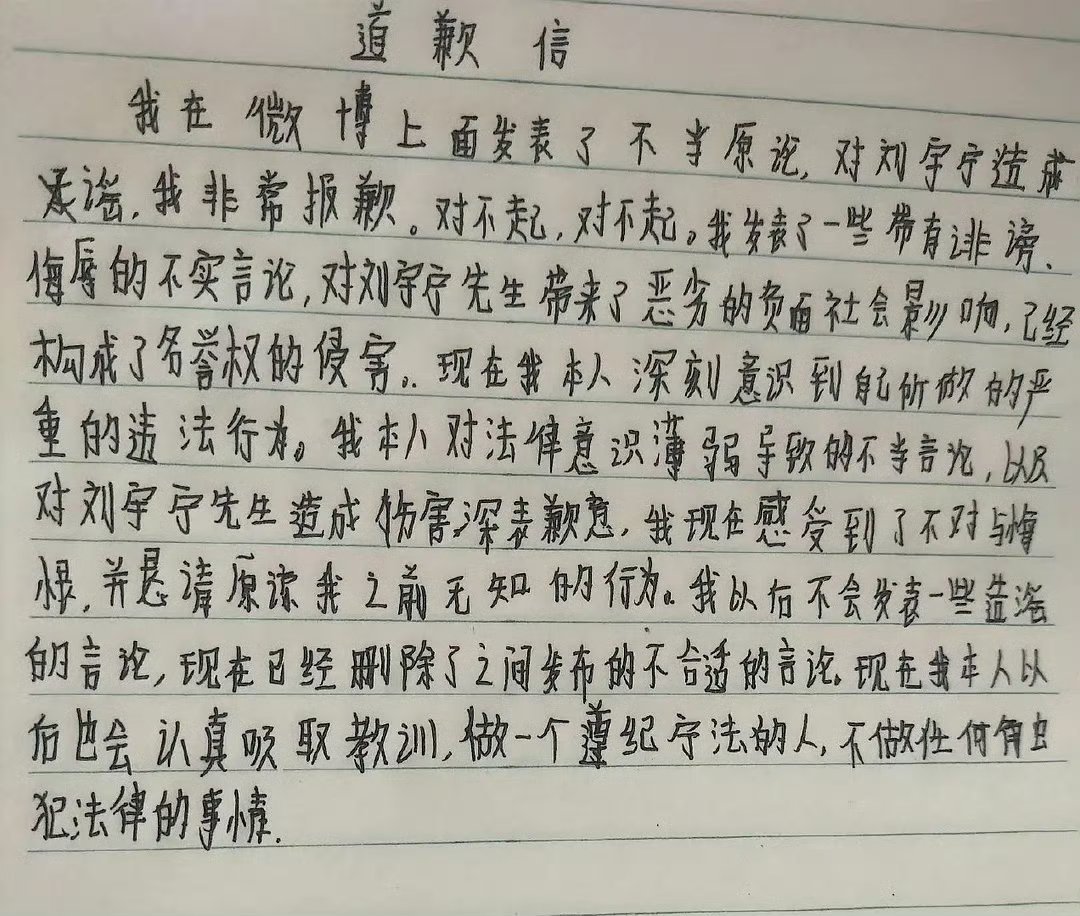 道歉信
我在微博上面发表了不当原论,对刘宇宁造成
谣,我非常报歉。对不起,对不起。我发表了一些带有诽谤、
侮辱的不实言论,对刘宇宁先生带来了恶劣的负面社会影响,已经
构成了名誉权的侵害。现在我本人深刻意识到自己所做的严
重的违法行为。我本人对法律意识薄弱导致的不当言论,以及
对刘宇宁先生造成伤害,深表歉意,我现在感受到了不对与悔
恨,并恳请原谅我之前无知的行为。我以后不会发表一些造谣
的言论,现在已经删除了之间发布的不合适的言论。现在我本人以
后也会认真吸取教训,做一个遵纪守法的人,不做任何触
犯法律的事情.